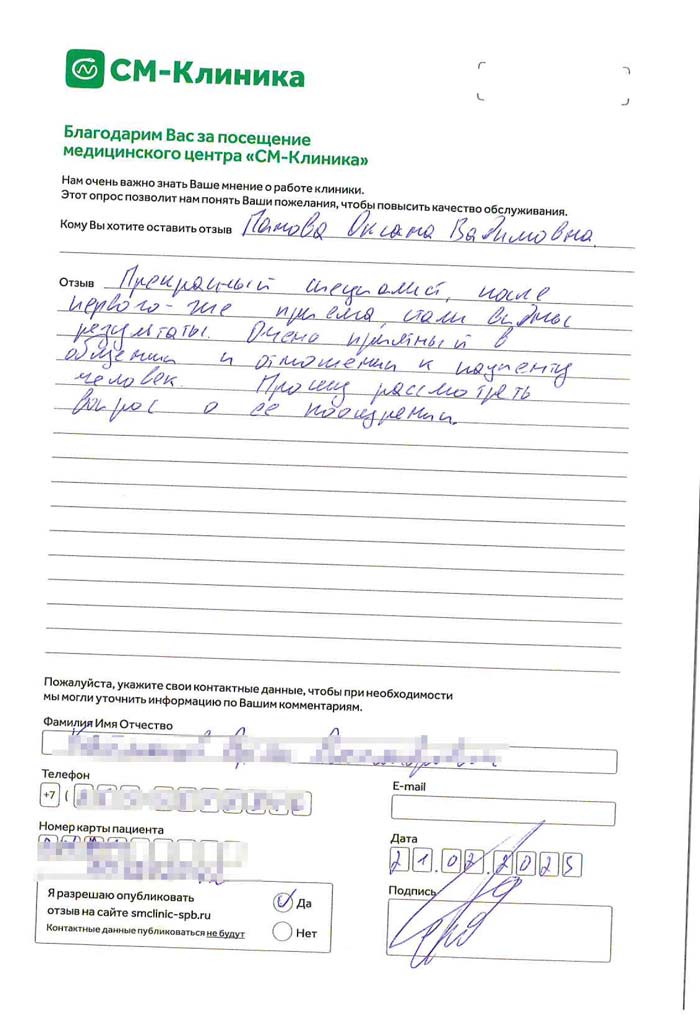 СМ-Клиника
Благодарим Вас за посещение
медицинского центра «СМ-Клиника»
Нам очень важно знать Ваше мнение о работе клиники.
Этот опрос позволит нам понять Ваши пожелания, чтобы повысить качество обслуживания.
Кому Вы хотите оставить отзыв Панова Оксана Вадимовна
Отзыв Прекрасный специалист, после
первого-же приема, стали видны
результаты. Очень приятный в
общении и отношении к пациенту
человек. Прошу рассмотреть
вопрос о ее поощрении.
Пожалуйста, укажите свои контактные данные, чтобы при необходимости
мы могли уточнить информацию по Вашим комментариям.
Фамилия Имя Отчество
Телефон
+7 (
E-mail
Номер карты пациента
Дата
21.02.2025
Я разрешаю опубликовать
отзыв на сайте smclinic-spb.ru
Контактные данные публиковаться не будут
Да
Нет
Подпись